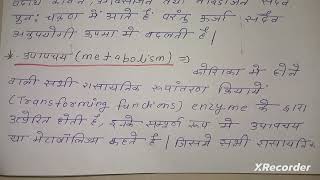 पुनः चक्रण में आते हैं परंतु ऊर्जा सदैव
अनुपयोगी ऊष्मा में बदलती है।
* उपापचय (metabolism) ⇒
कोशिका में होने
वाली सभी रासायनिक रूपांतरण क्रियायें
(Transforming functions) enzyme के द्वारा
उत्प्रेरित होती है, इनके सम्पूर्ण रूप में उपापचय
या मेटाबॉलिज्म कहते हैं। जिसमें सभी रासायनिक
XRecorder